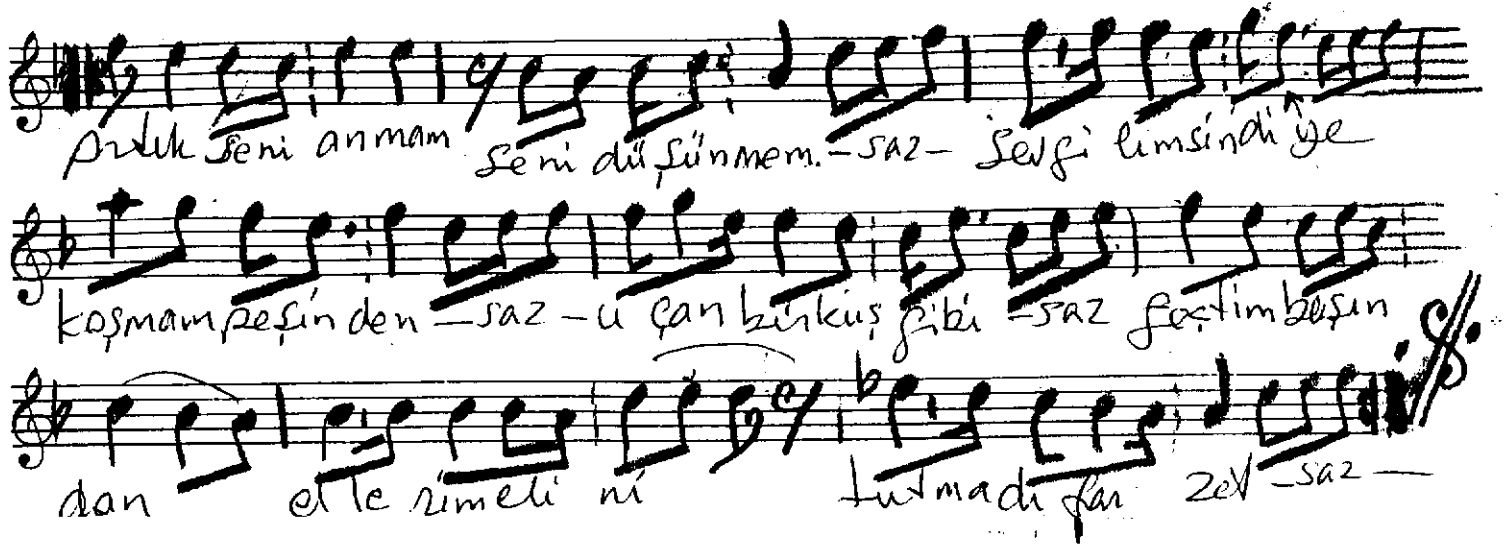 Artık seni anmam seni düşünmem. -saz- sevgi limsin di ye
koşmam peşin den -saz- u çan bir kuş gibi -saz geçtim başın
dan el le rimeli ni tutmadı far zet -saz-